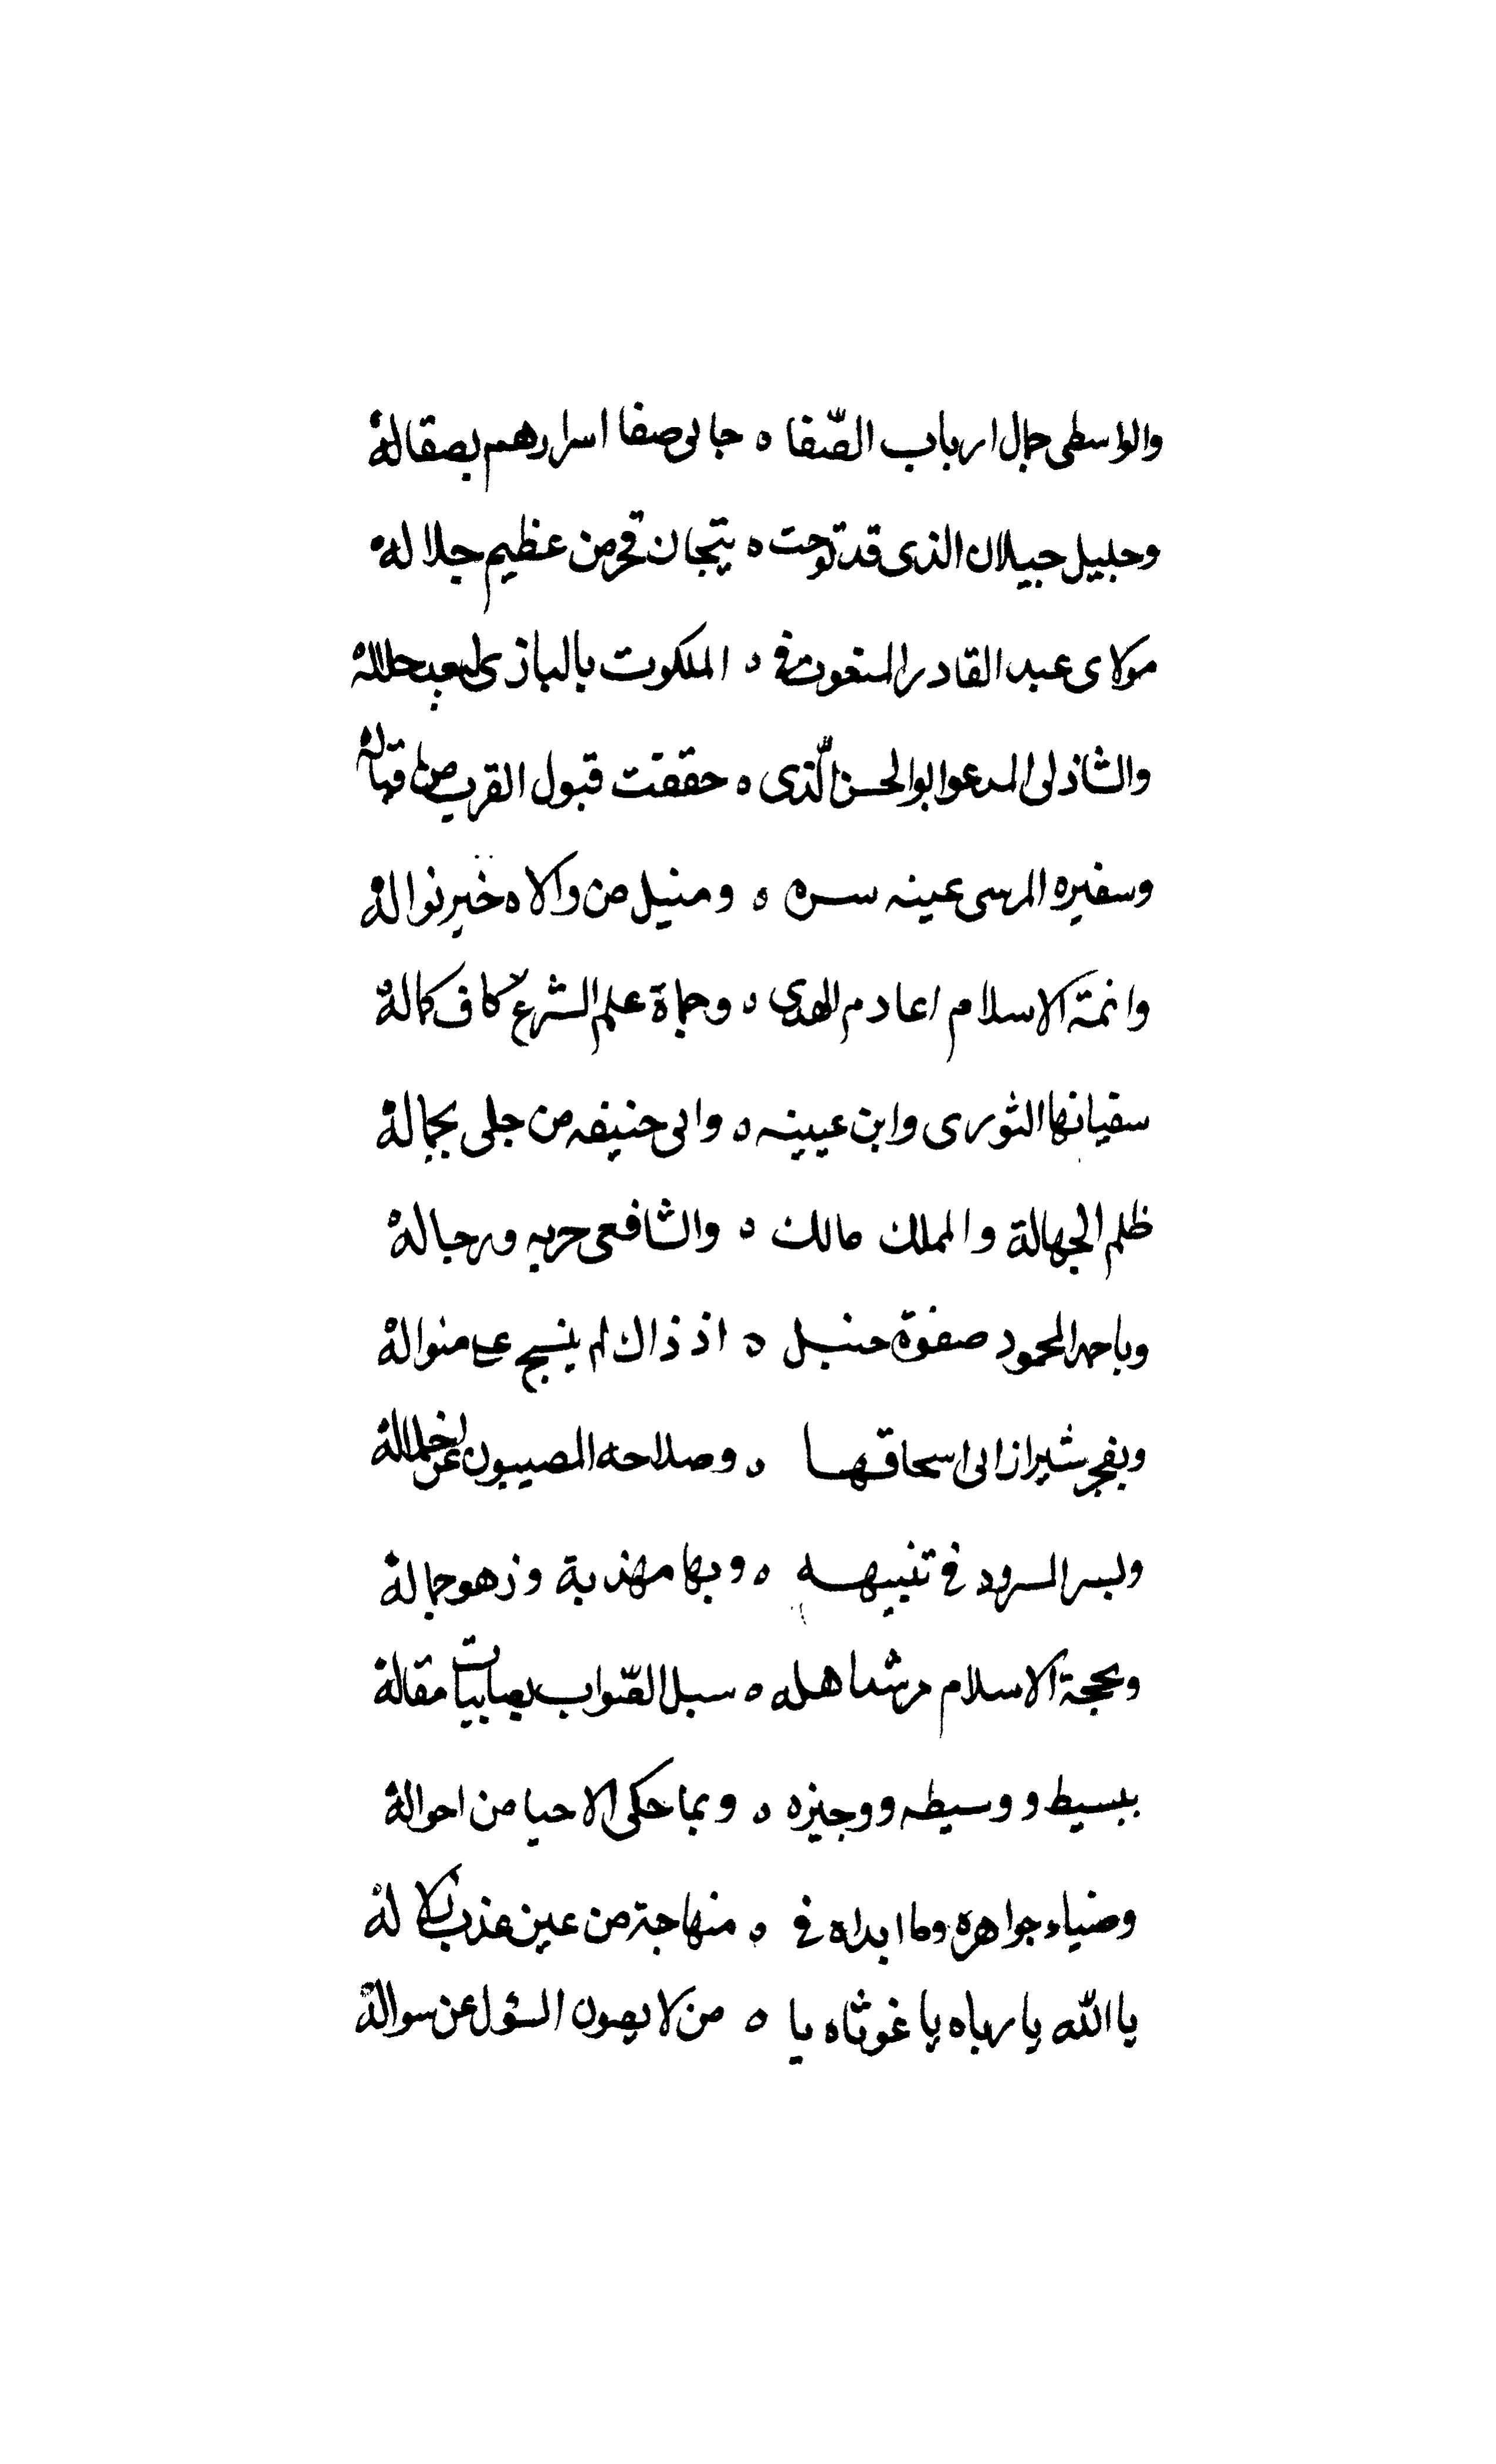 والواسطى جمال ارباب الصّفا ه جالى صفا اسرارهم بصقاله
وجليل جيلان الذى قد توجت ه بتيجان فخر من عظيم جلاله
مولاى عبد القادر المنعوت فى ه الملكوت بالبازى
والشاذلى المدعو ابو الحسن الّذى ه حققت قبول القرب من
وسفيره المرسى عينه سره ه ومنيل من والاه خير نواله
وائمة الاسلام اعلام الهدى ه وحماة علم الشرع كاف كماله
سفيانها الثورى وابن عيينه ه وابى حنيفه من جلى بجماله
ظلم الجهالة والملك مالك ه والشافعى حربه ورجاله
وباحمد المحمود صفوة حنبل ه اذ ذاك لم ينسج على منواله
وبفجر شيراز ابى اسحاقها ه وصلاحه المصيبون عن
وبسر السرود فى تنبيهه ه وبها مهذبة وزهو جماله
وبحجة الاسلام مرشد اهله ه سبل الصّواب مقاله
ببسيط و وسيطه ووجيزه ه وبما حكى الاحيا من احواله
وضياء جواهره وما ابداه فى ه منهاجة من عين عذب
يا الله يا رباه يا غوثاه يا ه من لا يصون السؤل عن سواله